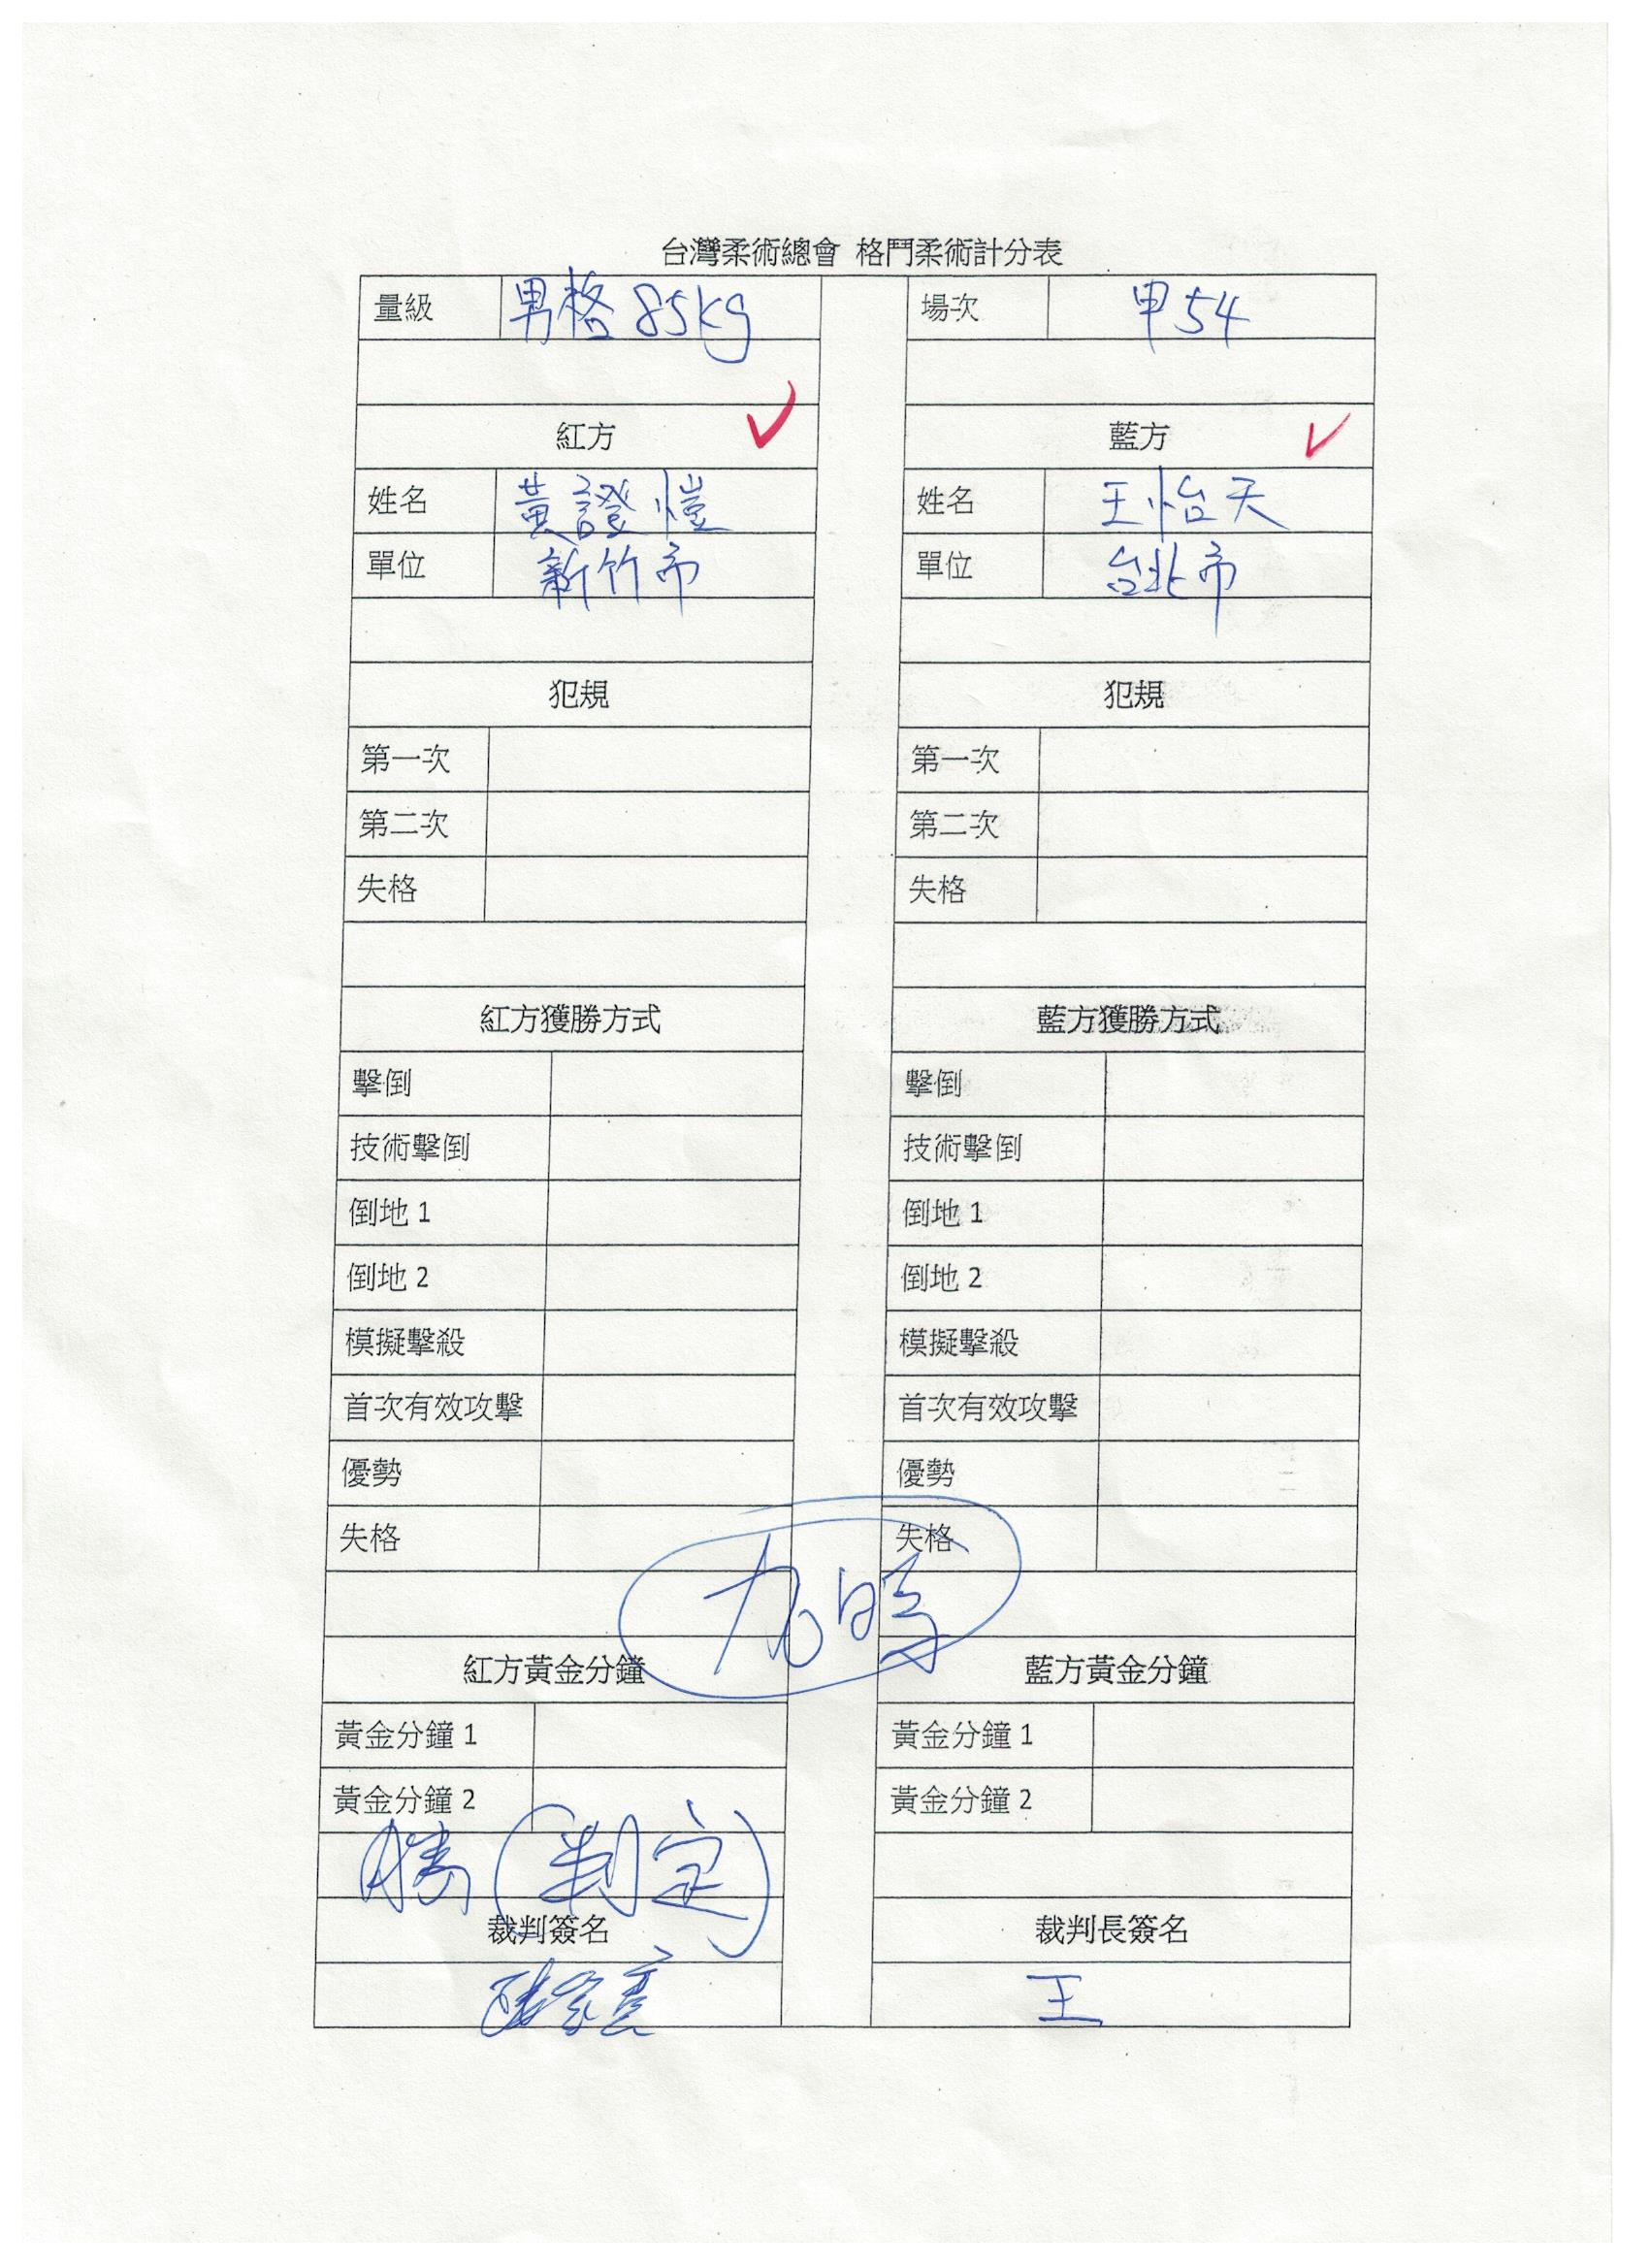 台灣柔術總會 格鬥柔術計分表
量級 男格 85kg 場次 甲54
紅方 藍方
姓名 黃證愷 姓名 王怡天
單位 新竹市 單位 台北市
犯規 犯規
第一次 第一次
第二次 第二次
失格 失格
紅方獲勝方式 藍方獲勝方式
擊倒 擊倒
技術擊倒 技術擊倒
倒地 1 倒地 1
倒地 2 倒地 2
模擬擊殺 模擬擊殺
首次有效攻擊 首次有效攻擊
優勢 優勢
失格 失格
紅方黃金分鐘 藍方黃金分鐘
黃金分鐘 1 黃金分鐘 1
黃金分鐘 2 黃金分鐘 2
勝(判定)
裁判簽名 裁判長簽名
王